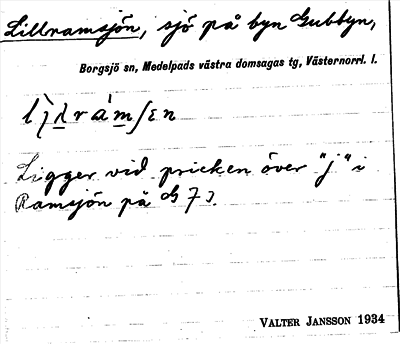 Lillramsjön, sjö på byn Gubbyn,
Borgsjö sn, Medelpads västra domsagas tg, Västernorrl. l.
Ligger vid pricken över "j" i
Ramsjön på G 73.
VALTER JANSSON 1934